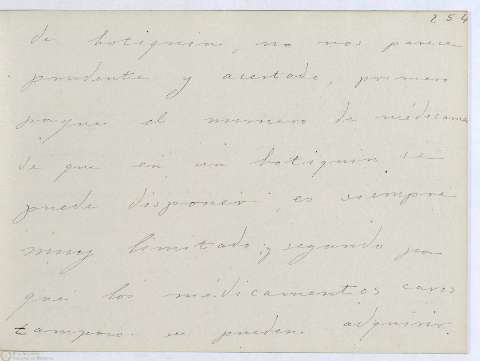 254
de botiquin, no nos parece
prudente y acertado, primero
porque el numero de médicame
de que en un botiquin se
puede disponer es siempre
muy limitado; y segundo por
que los médicamentos caros
tampoco se pueden adquirir.